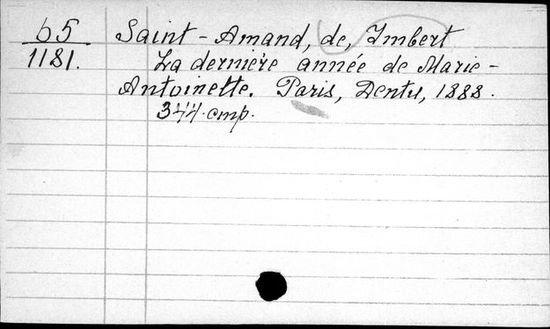 65
1181.
Saint-Amand, de, Imbert
La dernière année de Marie-
Antoinette. Paris, Dentu, 1888.
344 стр.